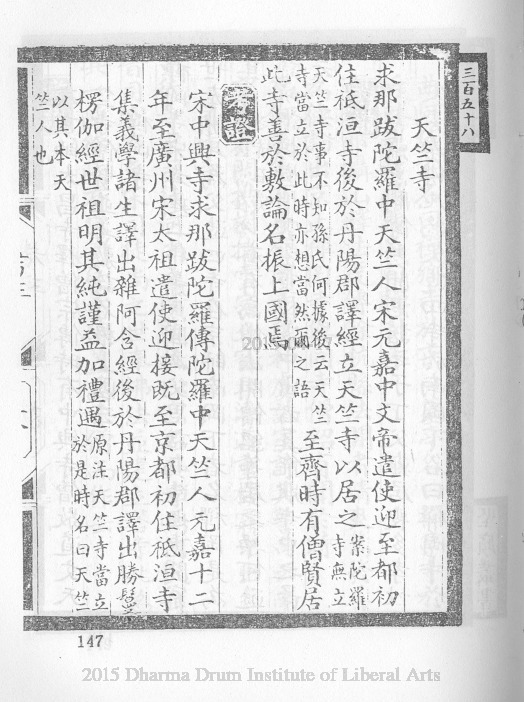 三百五十八
天竺寺
求那跋陀羅中天竺人宋元嘉中文帝遣使迎至都初
住祇洹寺後於丹陽郡譯經立天竺寺以居之案陀羅寺無立
天竺寺事不知孫氏何據後云天竺寺當立於此時亦想當然爾之語至齊時有僧賢居
此寺善於敷論名振上國焉
考證
宋中興寺求那跋陀羅傳陀羅中天竺人元嘉十二
年至廣州宋太祖遣使迎接既至京都初住祇洹寺
集義學諸生譯出雜阿含經後於丹陽郡譯出勝鬘
楞伽經世祖明其純謹益加禮遇原注天竺寺當立於是時名曰天竺
以其本天竺人也
147
2015 Dharma Drum Institute of Liberal Arts